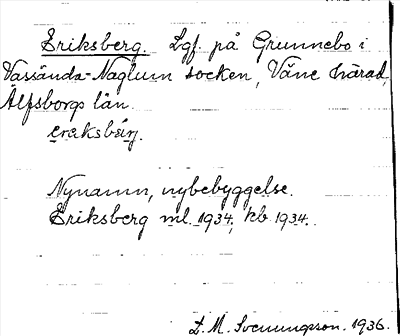 Eriksberg. Lgf. på Grunnebo i
Vassända-Naglum socken, Väne härad,
Älfsborgs län.
eraksbärj.
Nynamn, nybebyggelse.
Eriksberg ml. 1934, kb 1934.
L. M. Svenungsson. 1936.